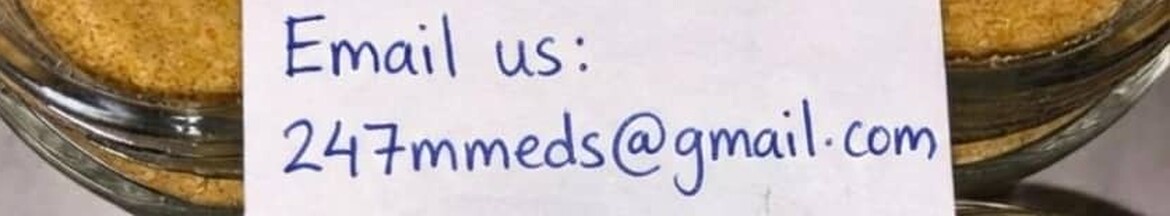 Email us:
247mmeds@gmail.com